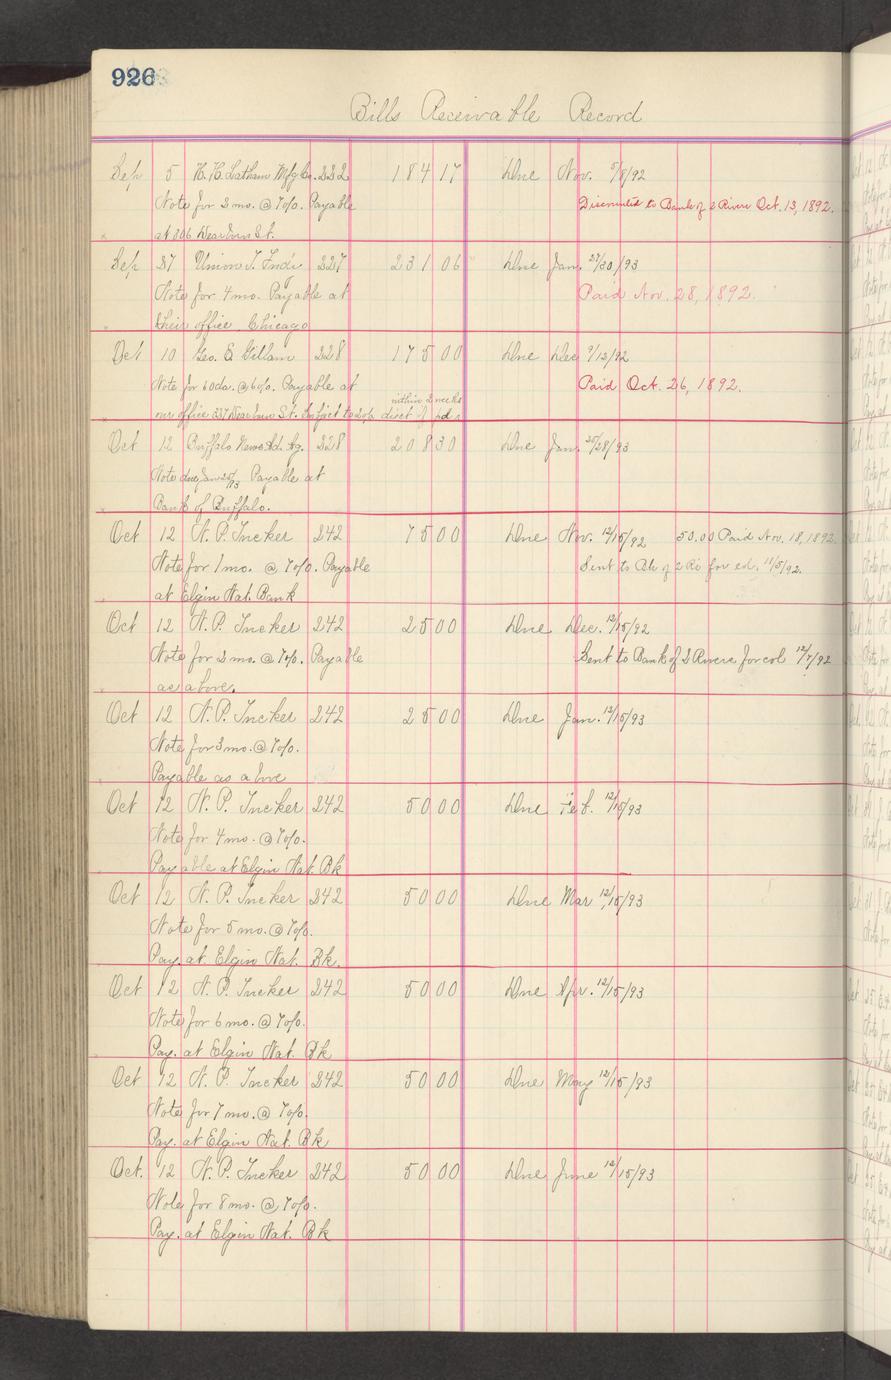 926
Bills Receivable Record
Sep 5 H. H. Latham Mfg Co. 222 184 17 Due Nov. 5/8/92
Note for 2 mo. @ 7%. Payable Discounted to Bank of 2 Rivers Oct. 13, 1892.
at 306 Dearborn St.
Sep 27 Union T. 227 231 06 Due Jan. 27/30/93
Note for 4 mo. Payable at Paid Nov. 28, 1892.
their office Chicago
Oct 10 Geo. E Gillam 228 175 00 Due Dec 9/12/92
Note for 60 da. @ 6%. Payable at Paid Oct. 26, 1892.
within 2 weeks
our office 337 Dearborn St. Subject to 2% disct if pd
Oct 12 Buffalo News Ad. Ag. 228 208 30 Due Jan. 25/28/93
Note due Jan 25/93 Payable at
Bank of Buffalo.
Oct 12 N. P. Tucker 242 75 00 Due Nov. 12/15/92 50.00 Paid Nov. 18, 1892.
Note for 1 mo. @ 7%. Payable Sent to Bk of 2 Ri for col. 11/5/92.
at Elgin Nat. Bank
Oct 12 N. P. Tucker 242 25 00 Due Dec. 12/15/92
Note for 2 mo. @ 7%. Payable Sent to Bank of 2 Rivers for col 12/7/92
as above.
Oct 12 N. P. Tucker 242 25 00 Due Jan. 12/15/93
Note for 3 mo. @ 7%.
Payable as above
Oct 12 N. P. Tucker 242 50 00 Due Feb. 12/15/93
Note for 4 mo. @ 7%.
Payable at Elgin Nat. Bk
Oct 12 N. P. Tucker 242 50 00 Due Mar 12/15/93
Note for 5 mo. @ 7%.
Pay. at Elgin Nat. Bk.
Oct 12 N. P. Tucker 242 50 00 Due Apr. 12/15/93
Note for 6 mo. @ 7%.
Pay. at Elgin Nat. Bk
Oct 12 N. P. Tucker 242 50 00 Due May 12/15/93
Note for 7 mo. @ 7%.
Pay. at Elgin Nat. Bk
Oct. 12 N. P. Tucker 242 50 00 Due June 12/15/93
Note for 8 mo. @ 7%.
Pay. at Elgin Nat. Bk